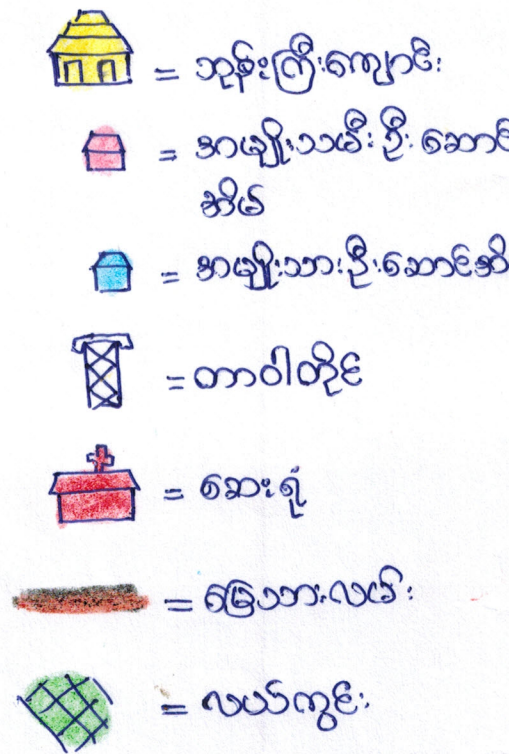 = ဘုန်းကြီးကျောင်း
= အမျိုးသမီးဦးဆောင်
အိမ်
= အမျိုးသားဦးဆောင်အိ
= တာဝါတိုင်
= ဆေးရုံ
= မြေသားလမ်း
= လယ်ကွင်း